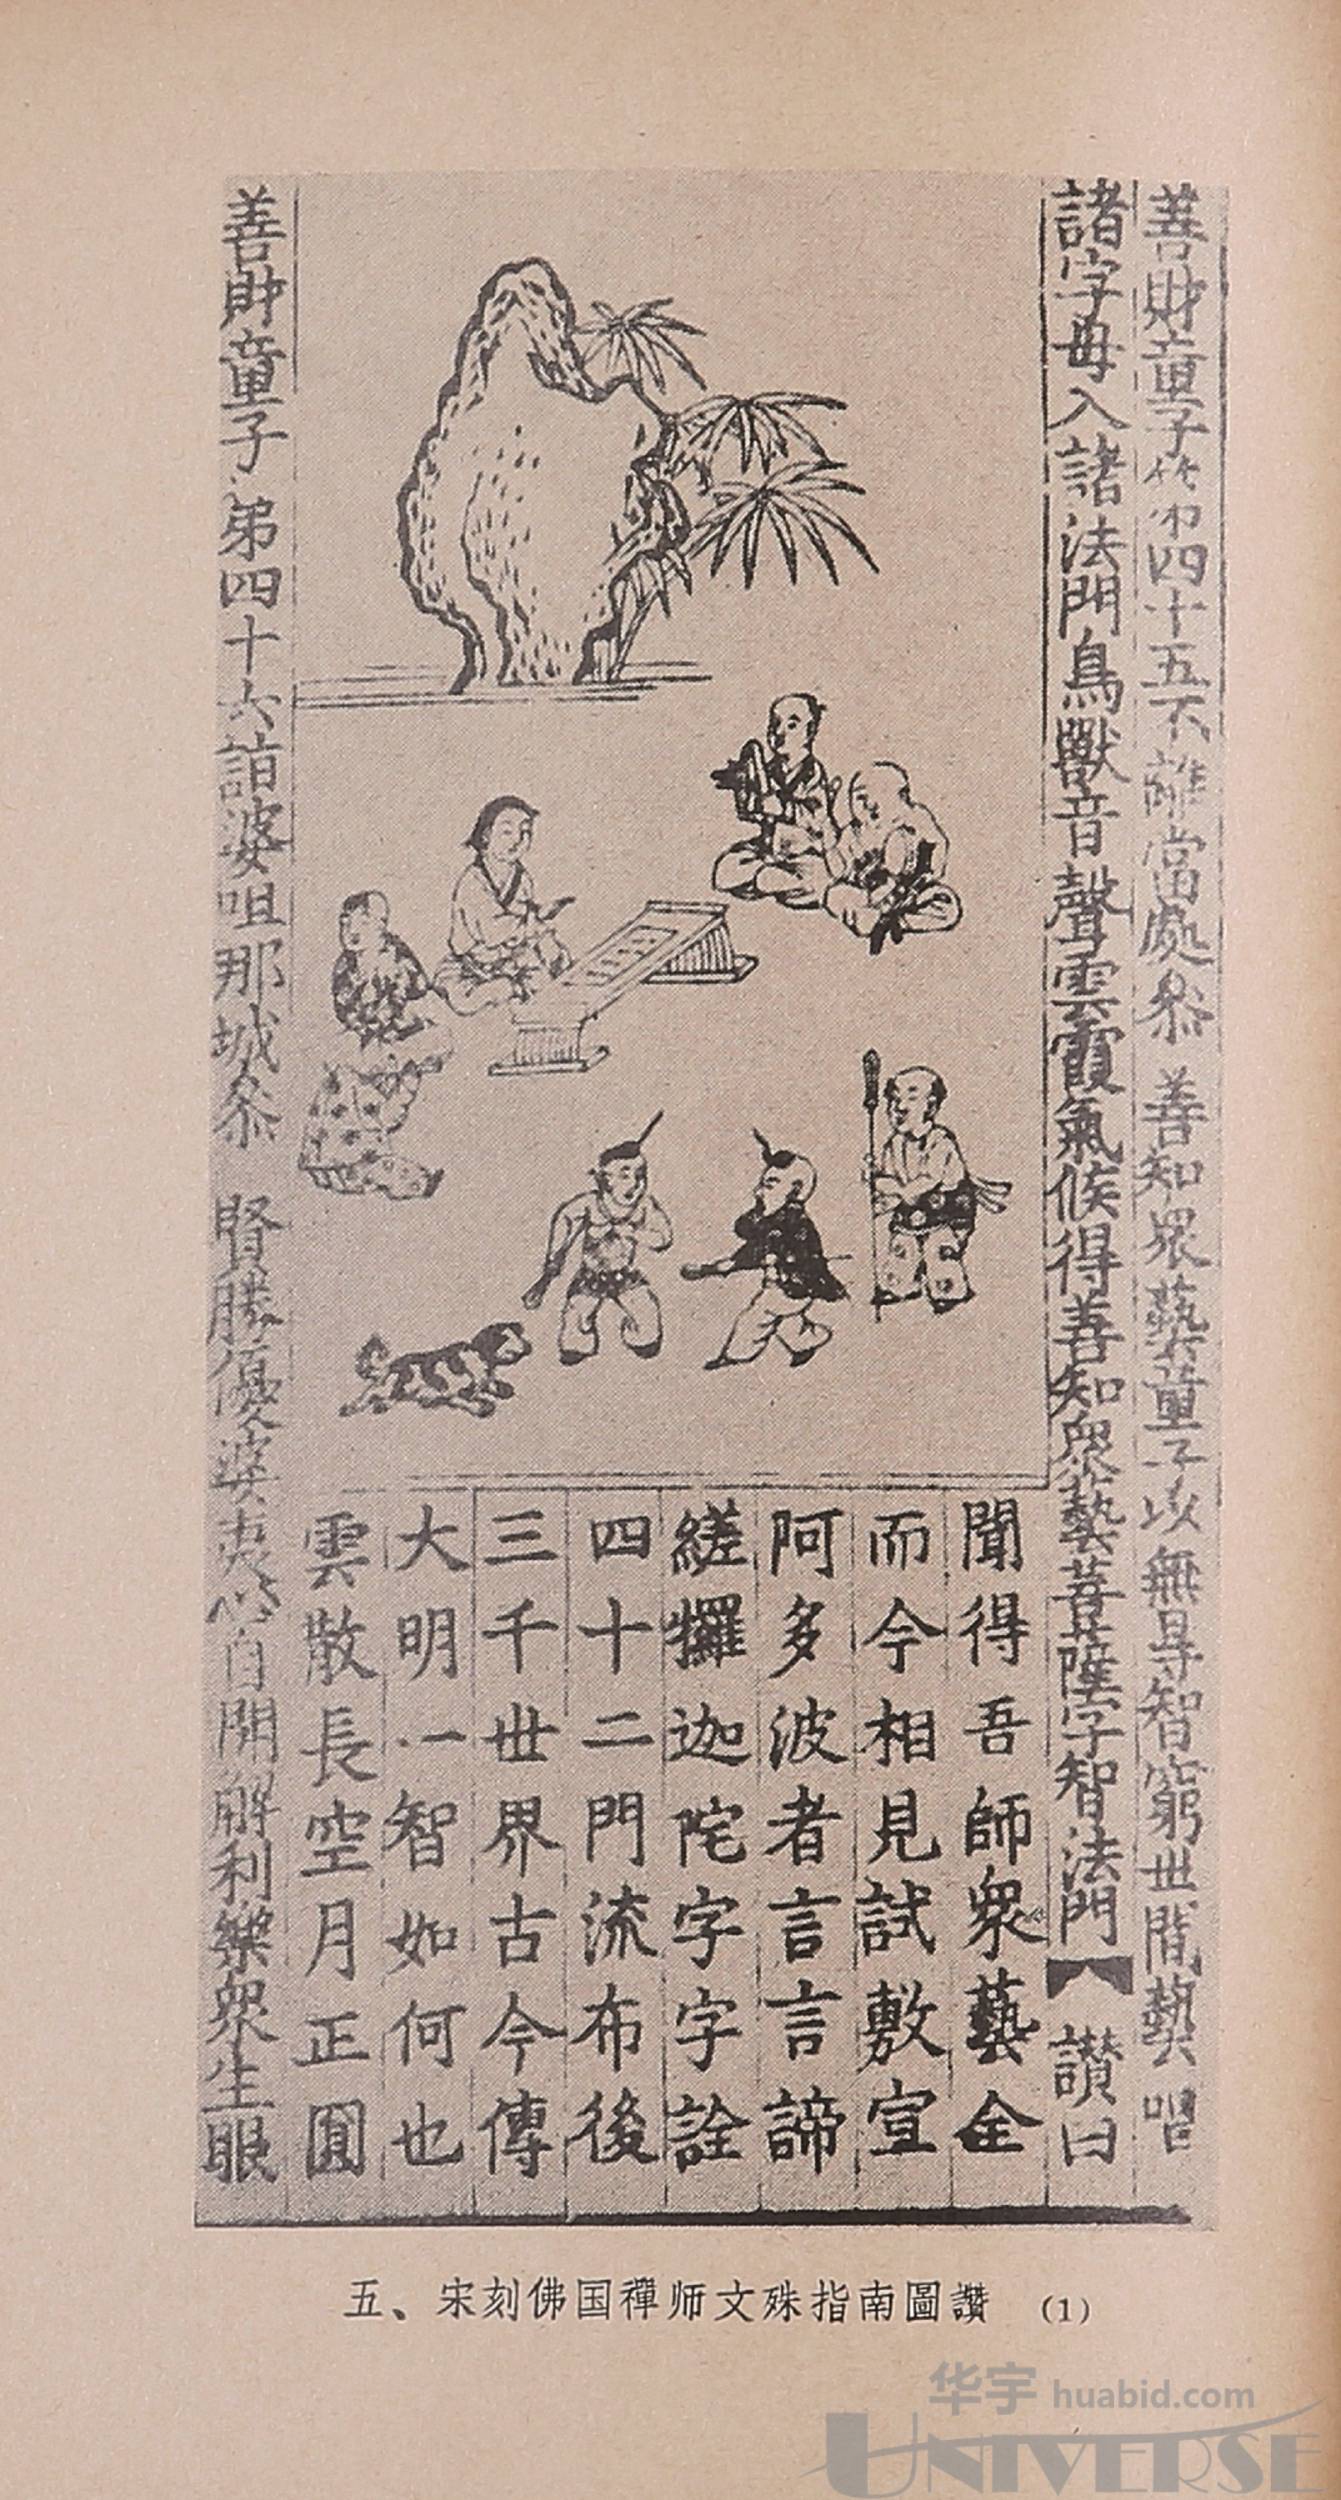 善財童子第四十五不離當處叅 善知眾藝童子以無㝵智窮世間藝唱
諸字母入諸法門鳥獸音聲雲霞氣候得善知眾藝菩薩字智法門 讚曰
聞得吾師眾藝全
而今相見試敷宣
阿多波者言言諦
縒攞迦陀字字詮
四十二門流布後
三千世界古今傳
大明一智如何也
雲散長空月正圓
善財童子第四十六詣婆咀那城叅 賢勝優婆夷以自開解利樂眾生眼
五、宋刻佛国禪师文殊指南圖讚 (1)
华宇 huabid.com
UNIVERSE